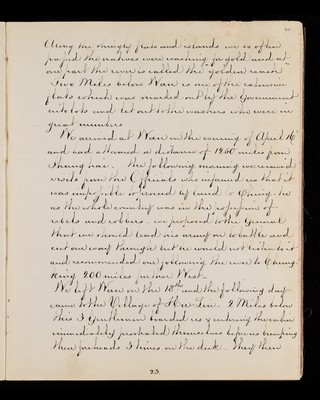 Along the shingly flats and islands we so often
passed the natives were washing for gold and at
one part the river is called the "golden reach"
Five Miles below Wan is one of the extensive
flats which was marked out by the Government
into lots and let out to the washers who were in
great numbers
We arrived at Wan on the evening of April 16th
and had attained a distance of 1250 miles from
Shanghai. The following morning we received
visits from the Officials who informed us that it
was impossible to proceed by land to Ching-tu
as the whole country was in the possession of
rebels and robbers. we proposed to the General
that we should lead his army on to battle and
cut our way through but he would not listen to it
and recommended our following the river to Chung
King 200 miles further West.
We left Wan on the 18th and the following day
came to the Village of Shu Lin. 2 Miles below
this 3 Gentlemen boarded us & entering the cabin
immediately prostrated themselves before us bumping
their foreheads 3 times on the deck. They then
23.